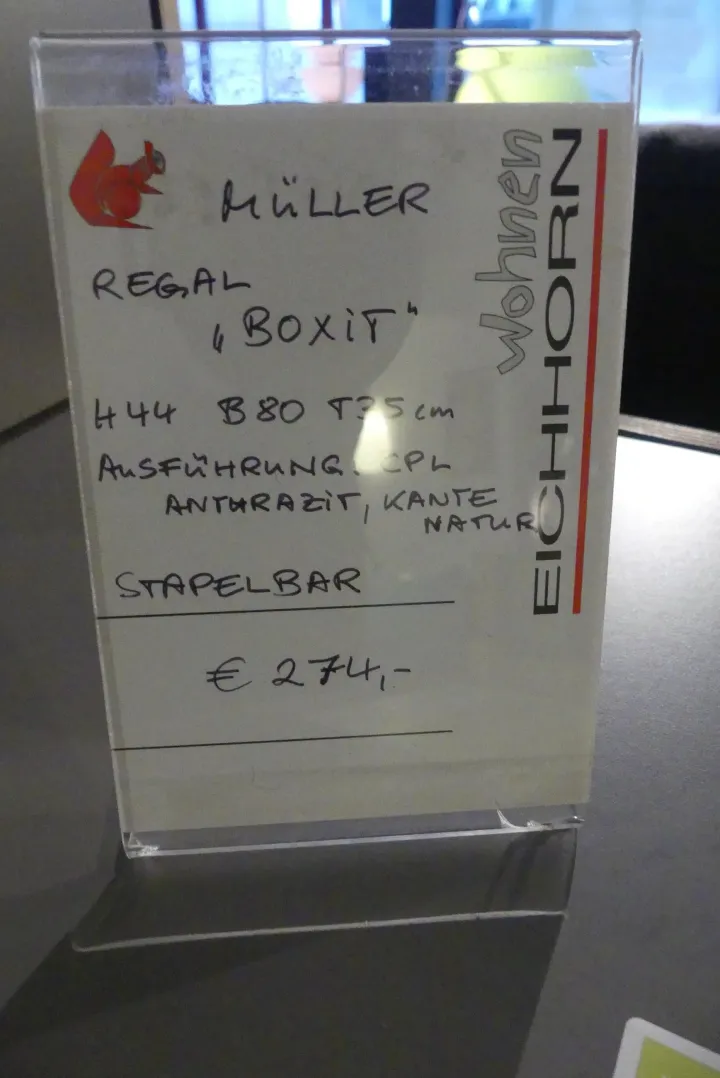 MÜLLER
REGAL
„BOXiT"
H44 B80 T35cm
AUSFÜHRUNG: CPL
ANTHRAZiT, KANTE
NATUR
STAPELBAR
€ 274,-
Wohnen
EICHHORN